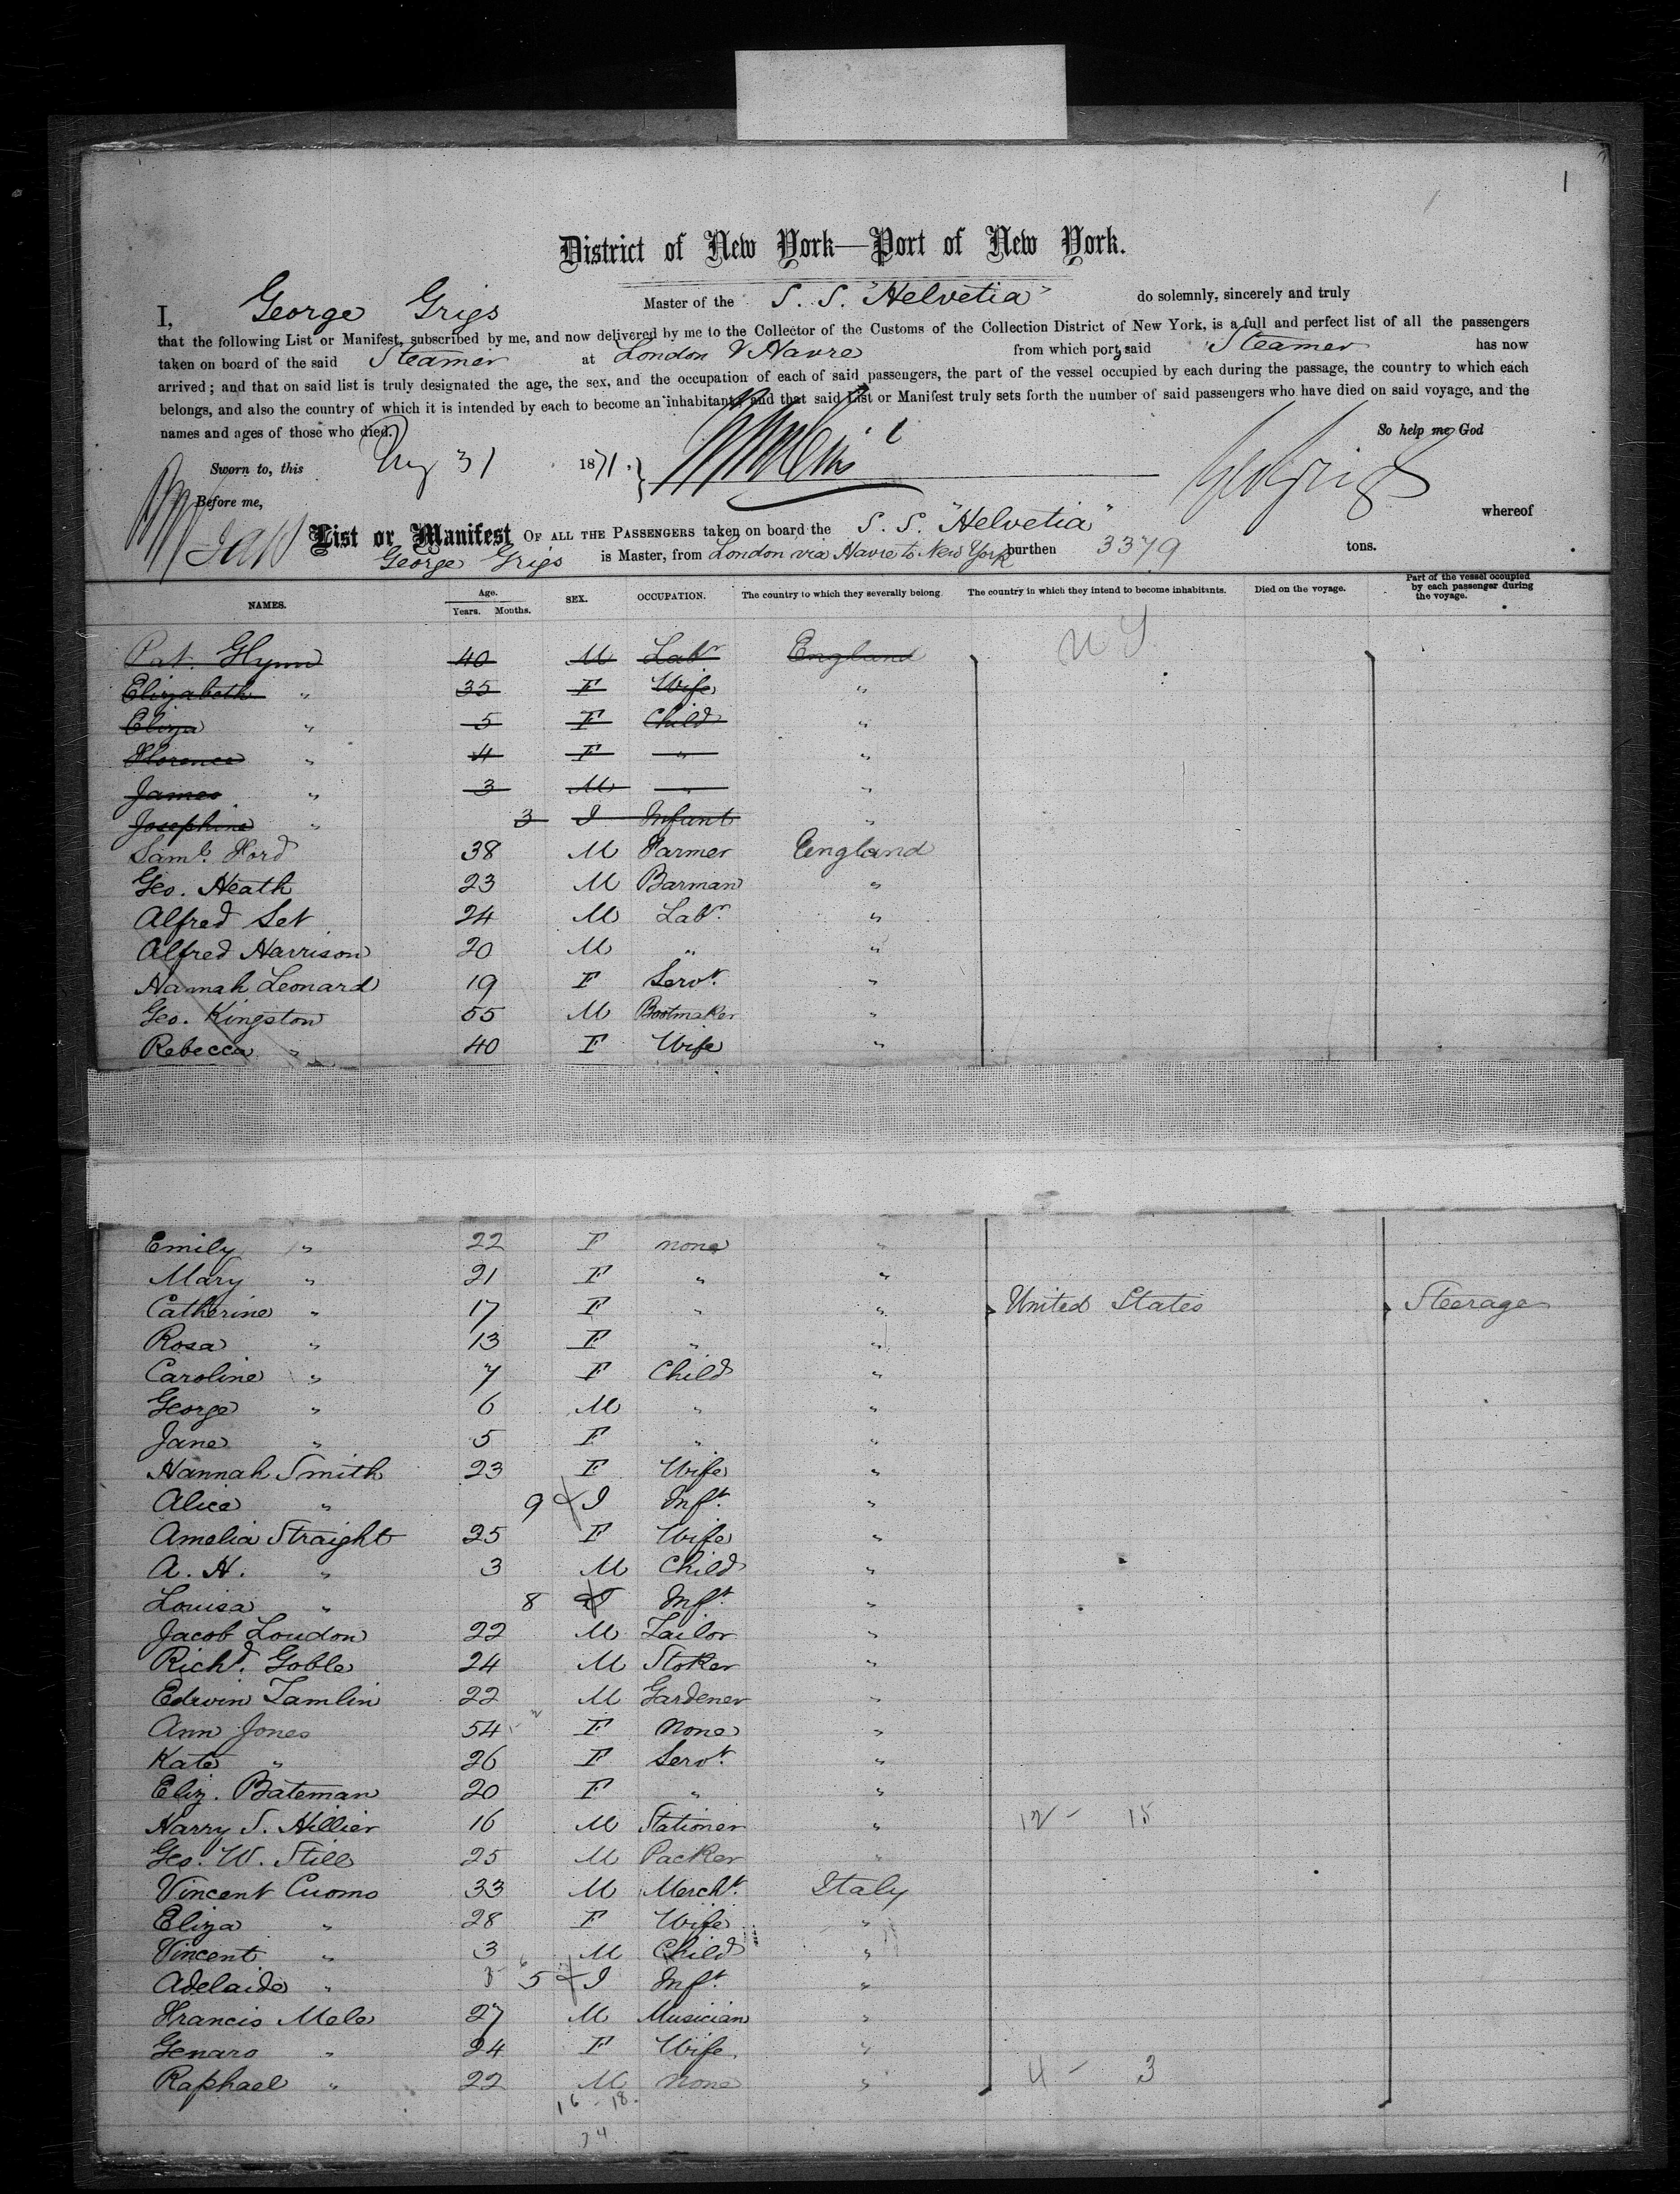 1
District of New York—Port of New York.
I, George Grigs Master of the S. S. "Helvetia" do solemnly, sincerely and truly
that the following List or Manifest, subscribed by me, and now delivered by me to the Collector of the Customs of the Collection District of New York, is a full and perfect list of all the passengers
taken on board of the said Steamer at London & Havre from which port, said Steamer has now
arrived; and that on said list is truly designated the age, the sex, and the occupation of each of said passengers, the part of the vessel occupied by each during the passage, the country to which each
belongs, and also the country of which it is intended by each to become an inhabitant; and that said List or Manifest truly sets forth the number of said passengers who have died on said voyage, and the
names and ages of those who died.
So help me God
Sworn to, this 31 1871.
Geo Grigs
Before me,
List or Manifest OF ALL THE PASSENGERS taken on board the S. S. "Helvetia" whereof
George Grigs is Master, from London via Havre to New York burthen 3379 tons.
NAMES. Age. Years. Months. SEX. OCCUPATION. The country to which they severally belong. The country in which they intend to become inhabitants. Died on the voyage. Part of the vessel occupied by each passenger during the voyage.
Pat. Glynn 40 M Labr England N Y
Elizabeth " 35 F Wife "
Eliza " 5 F Child "
Florence " 4 F " "
James " 3 M " "
Josephine " 3 I Infant "
Saml. Ford 38 M Farmer England
Geo. Heath 23 M Barman "
Alfred Set 24 M Labr. "
Alfred Harrison 20 M " "
Hannah Leonard 19 F Servt. "
Geo. Kingston 55 M Bootmaker "
Rebecca " 40 F Wife "
Emily " 22 F none "
Mary " 21 F " "
Catherine " 17 F " " United States Steerage
Rosa " 13 F " "
Caroline " 7 F Child "
George " 6 M " "
Jane " 5 F " "
Hannah Smith 23 F Wife "
Alice " 9 I Inft. "
Amelia Straight 25 F Wife "
A. H. " 3 M Child "
Louisa " 8 I Inft. "
Jacob Loudon 22 M Tailor "
Richd. Goble 24 M Stoker "
Edwin Tamlin 22 M Gardener "
Ann Jones 54 F None "
Kate " 26 F Servt. "
Eliz. Bateman 20 F " "
Harry S. Hillier 16 M Stationer " 12 - 15
Geo. W. Still 25 M Packer "
Vincent Cuomo 33 M Mercht. Italy
Eliza " 28 F Wife "
Vincent " 3 M Child "
Adelaide " 5 I Inft. "
Francis Mele 27 M Musician "
Genaro " 24 F Wife "
Raphael " 22 M none " 4 - 3
16 - 18.
34